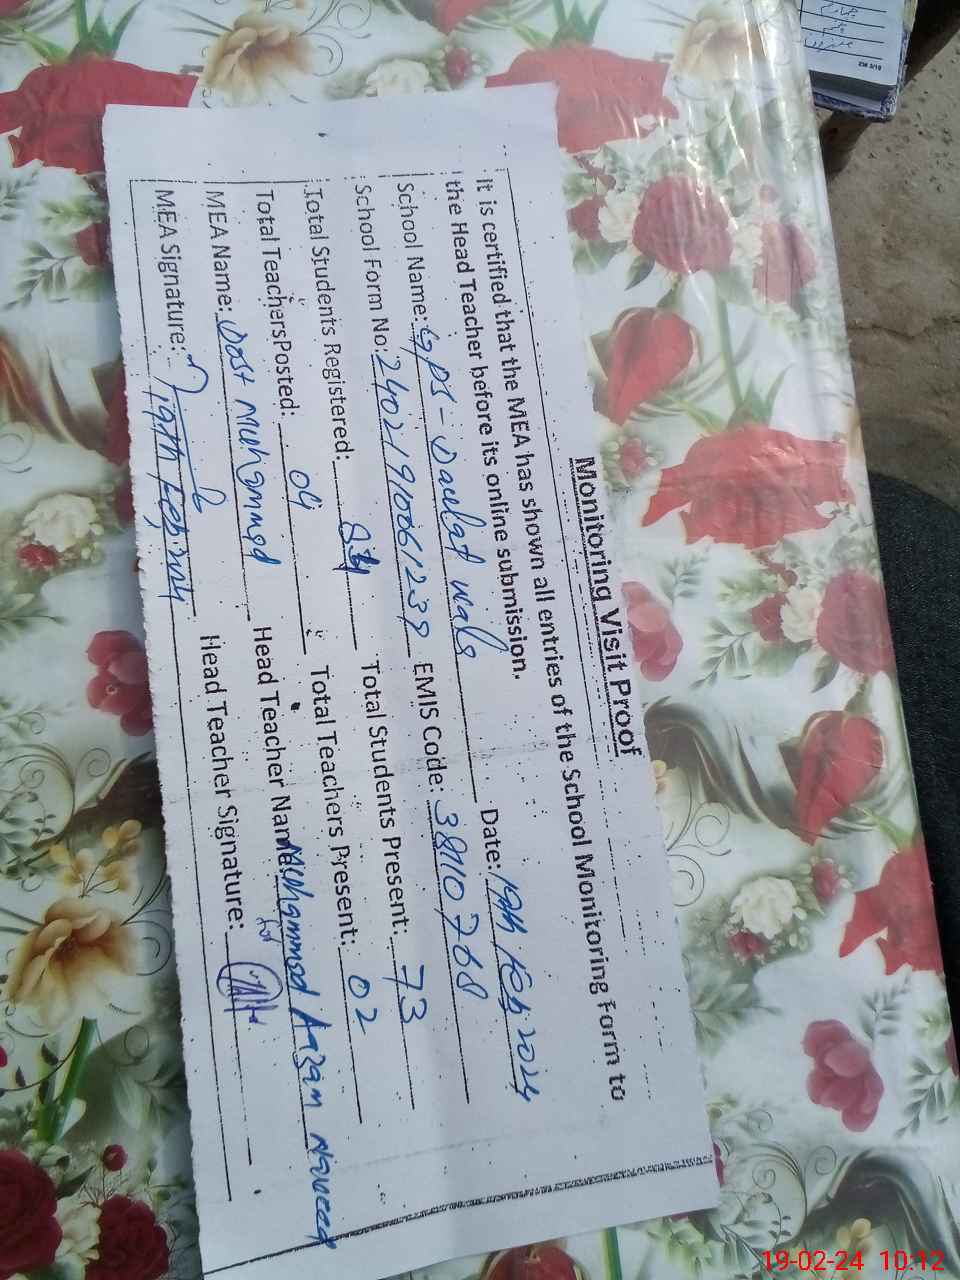 Monitoring Visit Proof
It is certified that the MEA has shown all entries of the School Monitoring Form to
the Head Teacher before its online submission.
School Name: GPS - Daulat wala Date: 19th Feb 2024
School Form No: 24021910061239 EMIS Code: 38110768
Total Students Registered: 84 Total Students Present: 73
Total Teachers Posted: 04 Total Teachers Present: 02
MEA Name: Dost Muhammad Head Teacher Name: Muhammad Aazam Naveed
MEA Signature: 19th Feb 2024 Head Teacher Signature:
19-02-24 10:12